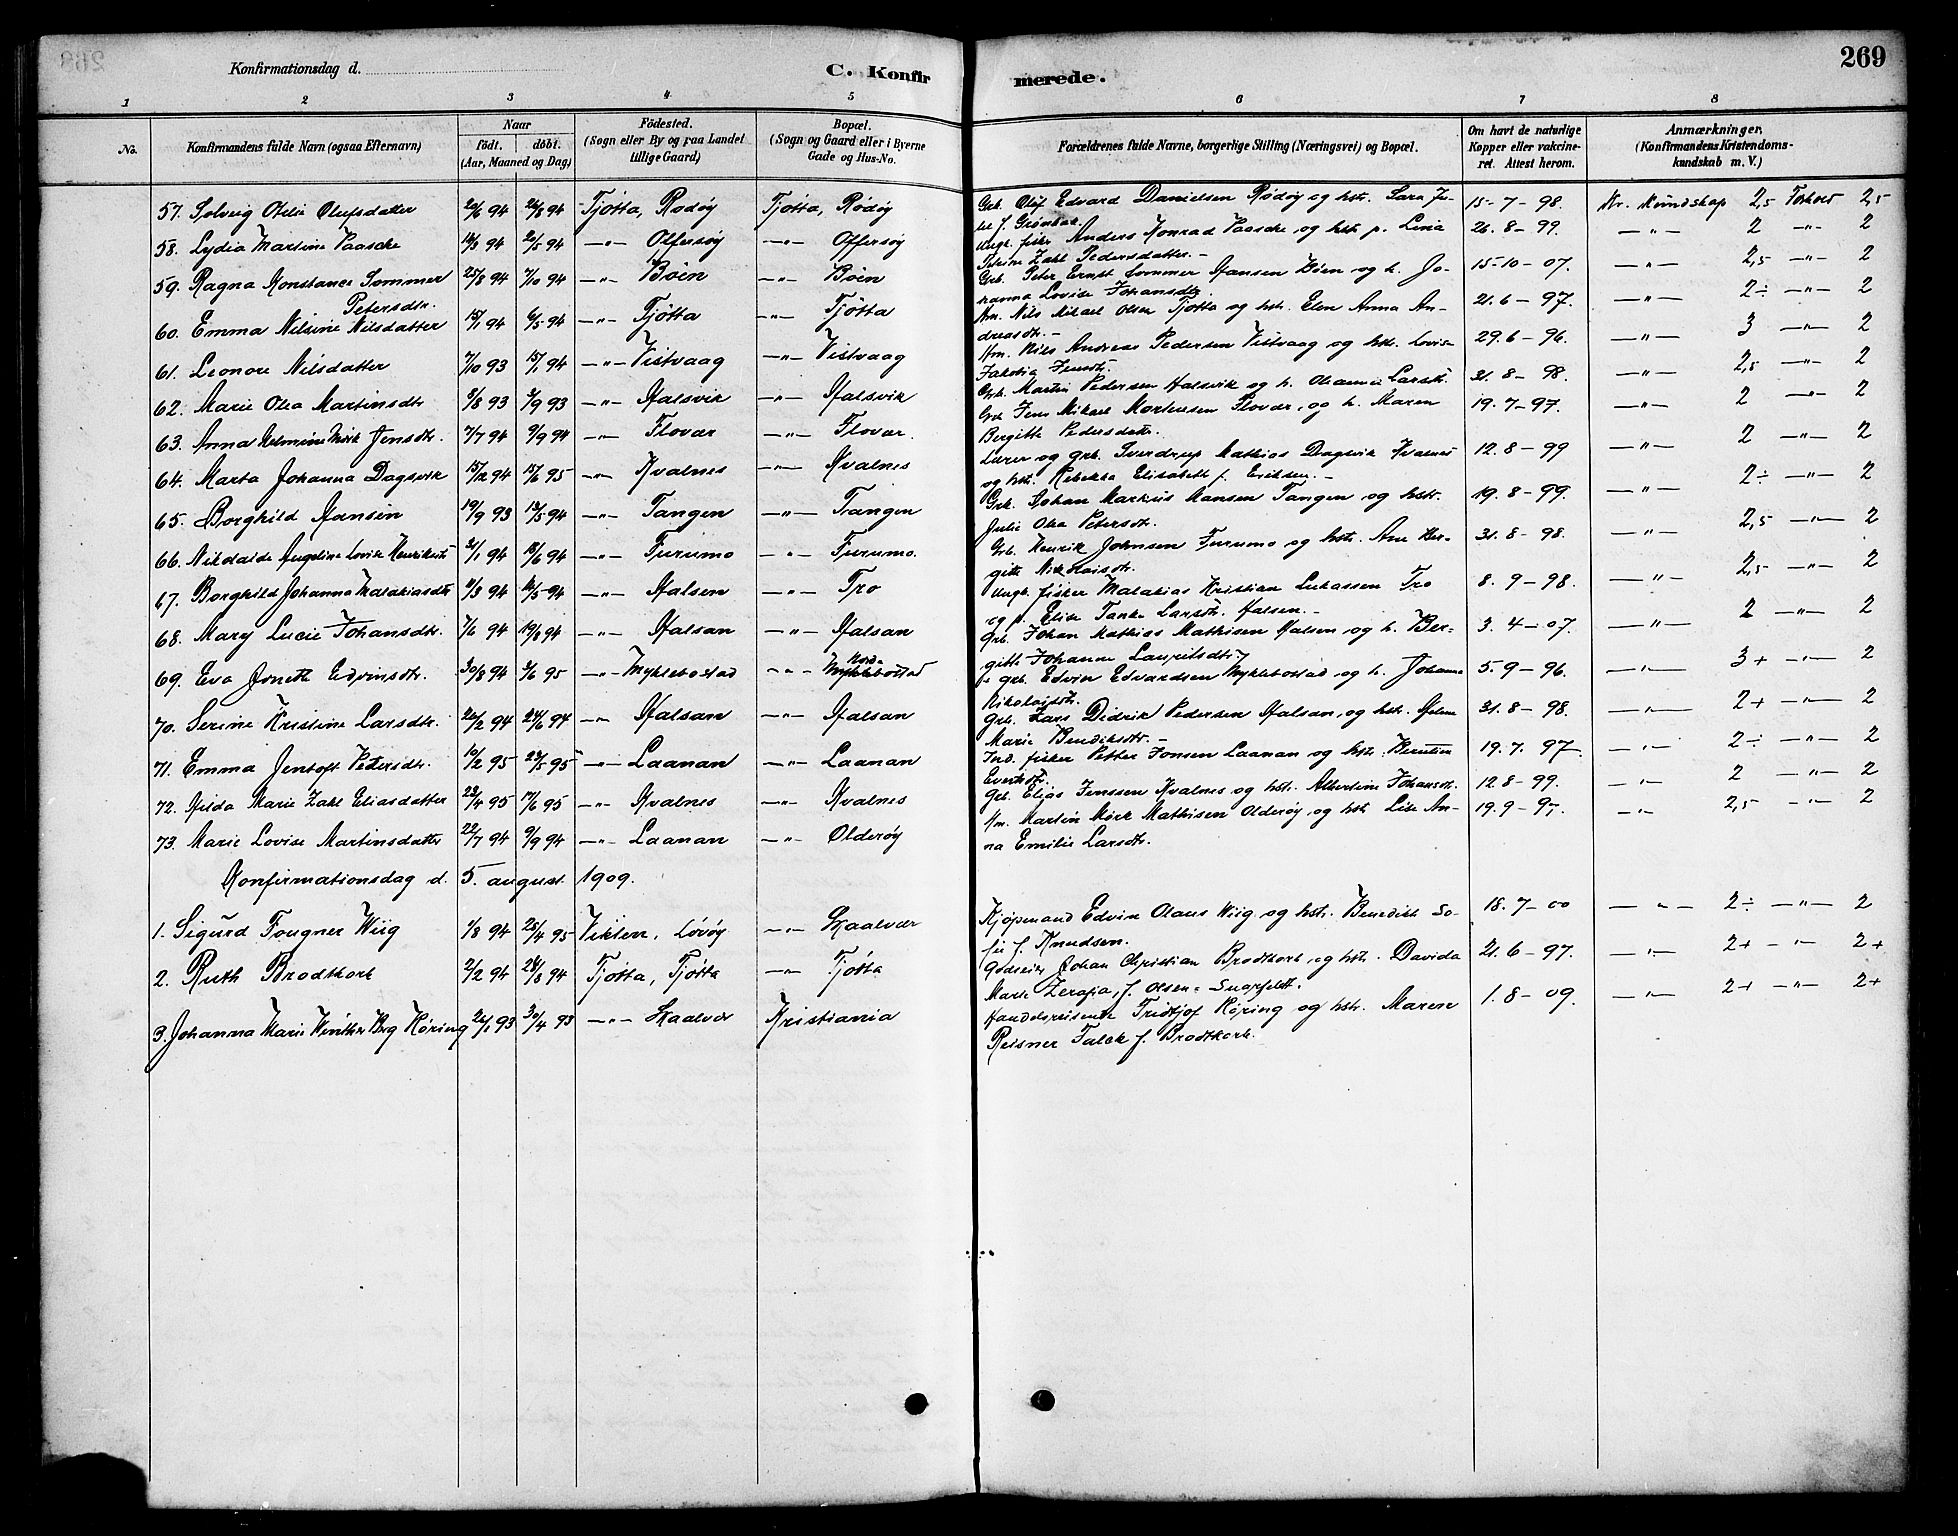 Konfirmationsdag d.
C. Konfir
merede.
269
1 2 3 4 5 6 7 8
No. Konfirmandens fulde Navn (ogsaa Efternavn) Naar født. døbt. (Aar, Maaned og Dag) Födested. (Sogn eller By og paa Landet tillige Gaard) Bopæl. (Sogn og Gaard eller i Byerne Gade og Hus-No. Forældrenes fulde Navne, borgerlige Stilling (Næringsvei) og Bopæl. Om havt de naturlige Kopper eller vakcineret. Attest herom. Anmærkninger, (Konfirmandens Kristendomskundskab m. V.)
57. Solveig Otelie Olufsdatter 20/6 94 26/8 94 Tjøtta, Rødøy Tjøtta, Rødøy Grb. Olof Edvard Danielsen Rødøy og hstr. Sara 15-7-98. Kr. Kundskap 2,5 Forhold 2,5
58. Lydia Martine Paasche 94 2/5 94 —"— Offersøy —"— Offersøy Ungk. fisker Anders Konrad Paasche og hstr. p. Lina Petrine Zahl Pedersdatter.- 26.8-99. —"— 2 —"— 2
59. Ragna Konstance Sommer Petersdtr. 25/8 94 7/10 94 —"— Bøen —"— Bøen Grb. Peter Ernst Sommer Hansen Bøen og h. Johanna Lovise Johansdtr. 15-10-07. —"— 2,5 —"— 2
60. Emma Nilsine Nilsdatter 15/1 94 6/5 94 —"— Tjøtta —"— Tjøtta Nils Mikael Olsen Tjøtta og hstr. Elen Anna Andreasdtr.- 21.6-97. —"— 2÷ —"— 2
61. Leonore Nilsdatter 7/10 93 15/1 94 —"— Vistvaag —"— Vistvaag Hm. Nils Andreas Pedersen Vistvaag og hstr. Lovise Jakobia Jensdtr. 29.6-96. —"— 3 —"— 2
62. Marie Olea Martinsdtr 8/8 93 3/9 93 —"— Halsvik —"— Halsvik Grb. Martin Pedersen Halsvik og h. Larsdtr. 31.8-98. —"— 2,5 —"— 2
63. Anna Helmine Mörk Jensdtr. 7/7 94 9/9 94 —"— Flovær —"— Flovær. Grb Jens Mikael Mortensen Flovær, og h. Maren Bergitte Pedersdatter. 19.7-97. —"— 2 —"— 2
64. Marta Johanna Dagsvik 15/2 94 15/6 95 —"— Kvalnes —"— Kvalnes Lærer og grb. Sverdrup Mathias Dagsvik Kvalnes og hstr. Rebekka Elisabeth f. Eriksen.- 12.8-99 —"— 2 —"— 2
65. Borghild Hansen 19/9 93 13/5 94 —"— Tangen —"— Tangen Grb. Johan Markus Hansen Tangen og hstr. Julie Olea Petersdtr. 19.8-99. —"— 2÷ —"— 2
66. Nikolaide Angeline Lovise Henriksdtr 31/1 94 18/6 94 —"— Furumo —"— Furumo. Grb. Henrik Johnsen Furumo og hstr. Ane Bergitte Nikolaisdtr. 31.8-98. —"— 2,5 —"— 2
67. Borghild Johanna Malakiasdtr 11/3 94 14/5 94 —"— Halsen —"— Tro Ungk. fisker Malakias Kristian Lukassen Tro og p. Elise Tanke Larsdtr. Halsen.- 8.9-98. —"— 2,5 —"— 2
68. Mary Lucie Johansdtr. 7/6 94 19/8 94 —"— Halsan —"— Halsan Grb. Johan Mathias Mathisen Halsen og h. Bergitte Johanne Lauritsdtr. 3.4-07. —"— 2 —"— 2
69. Eva Jonette Edvinsdtr. 30/8 94 3/6 95 —"— Myklebostad —"— Nord-Myklebostad grb. Edvin Edvardsen Myklebostad og h. Johanna Nikolaisdtr. 5.9-96. —"— 3+ —"— 2
70. Serine Kristine Larsdtr. 26/2 94 24/6 94 —"— Halsan —"— Halsan Grb. Lars Didrik Pedersen Halsan, og hstr. Helene Marie Bendiksdtr.- 31.8-98. —"— 2+ —"— 2
71. Emma Jentoft Petersdtr. 10/2 95 95 —"— Laanan —"— Laanan Ind. fisker Petter Jonsen Laanan og hstr. 19.7.97. —"— 2÷ —"— 2
72. Hilda Marie Zahl Eliasdatter 22/4 95 17/6 95 —"— Kvalnes —"— Kvalnes Grb. Elias Jenssen Kvalnes og hstr. Albertine Johansdtr. 12.8-99. —"— 2 —"— 2
73. Marie Lovise Martinsdatter 22/7 94 9/9 94 —"— Laanan —"— Olderøy Hm. Martin Mörk Mathisen Olderøy og hstr. Lise Anna Emilie Larsdtr. 19.9-97. —"— 2,5 —"— 2
Konfirmationsdag d. 5. august 1909.
1. Sigurd Fougner Wiig 1/8 94 28/4 95 Vikten, Lövöy —"— Skaalvær Kjøpmand Edvin Olaus Wiig og hstr. Benedikte Sofie f. Knudsen. 18.7-00 —"— 2÷ —"— 2
2. Ruth Brodtkorb 2/2 94 26/8 94 Tjøtta, Tjøtta —"— Tjøtta Godseier Johan Christian Brodtkorb, og hstr. Davida Marie Zerafia, f. Olsen-Snarfeldt. 21.6-97. —"— 2+ —"— 2+
3. Johanna Marie Winther Berg Høring 26/1 93 30/4 93 —"— Skaalvær Kristiania Handelsreisende Fridtjof Høring og hstr. Maren Reisner Falck f. Brodtkorb. 1.8-09. —"— 2+ —"— 2+